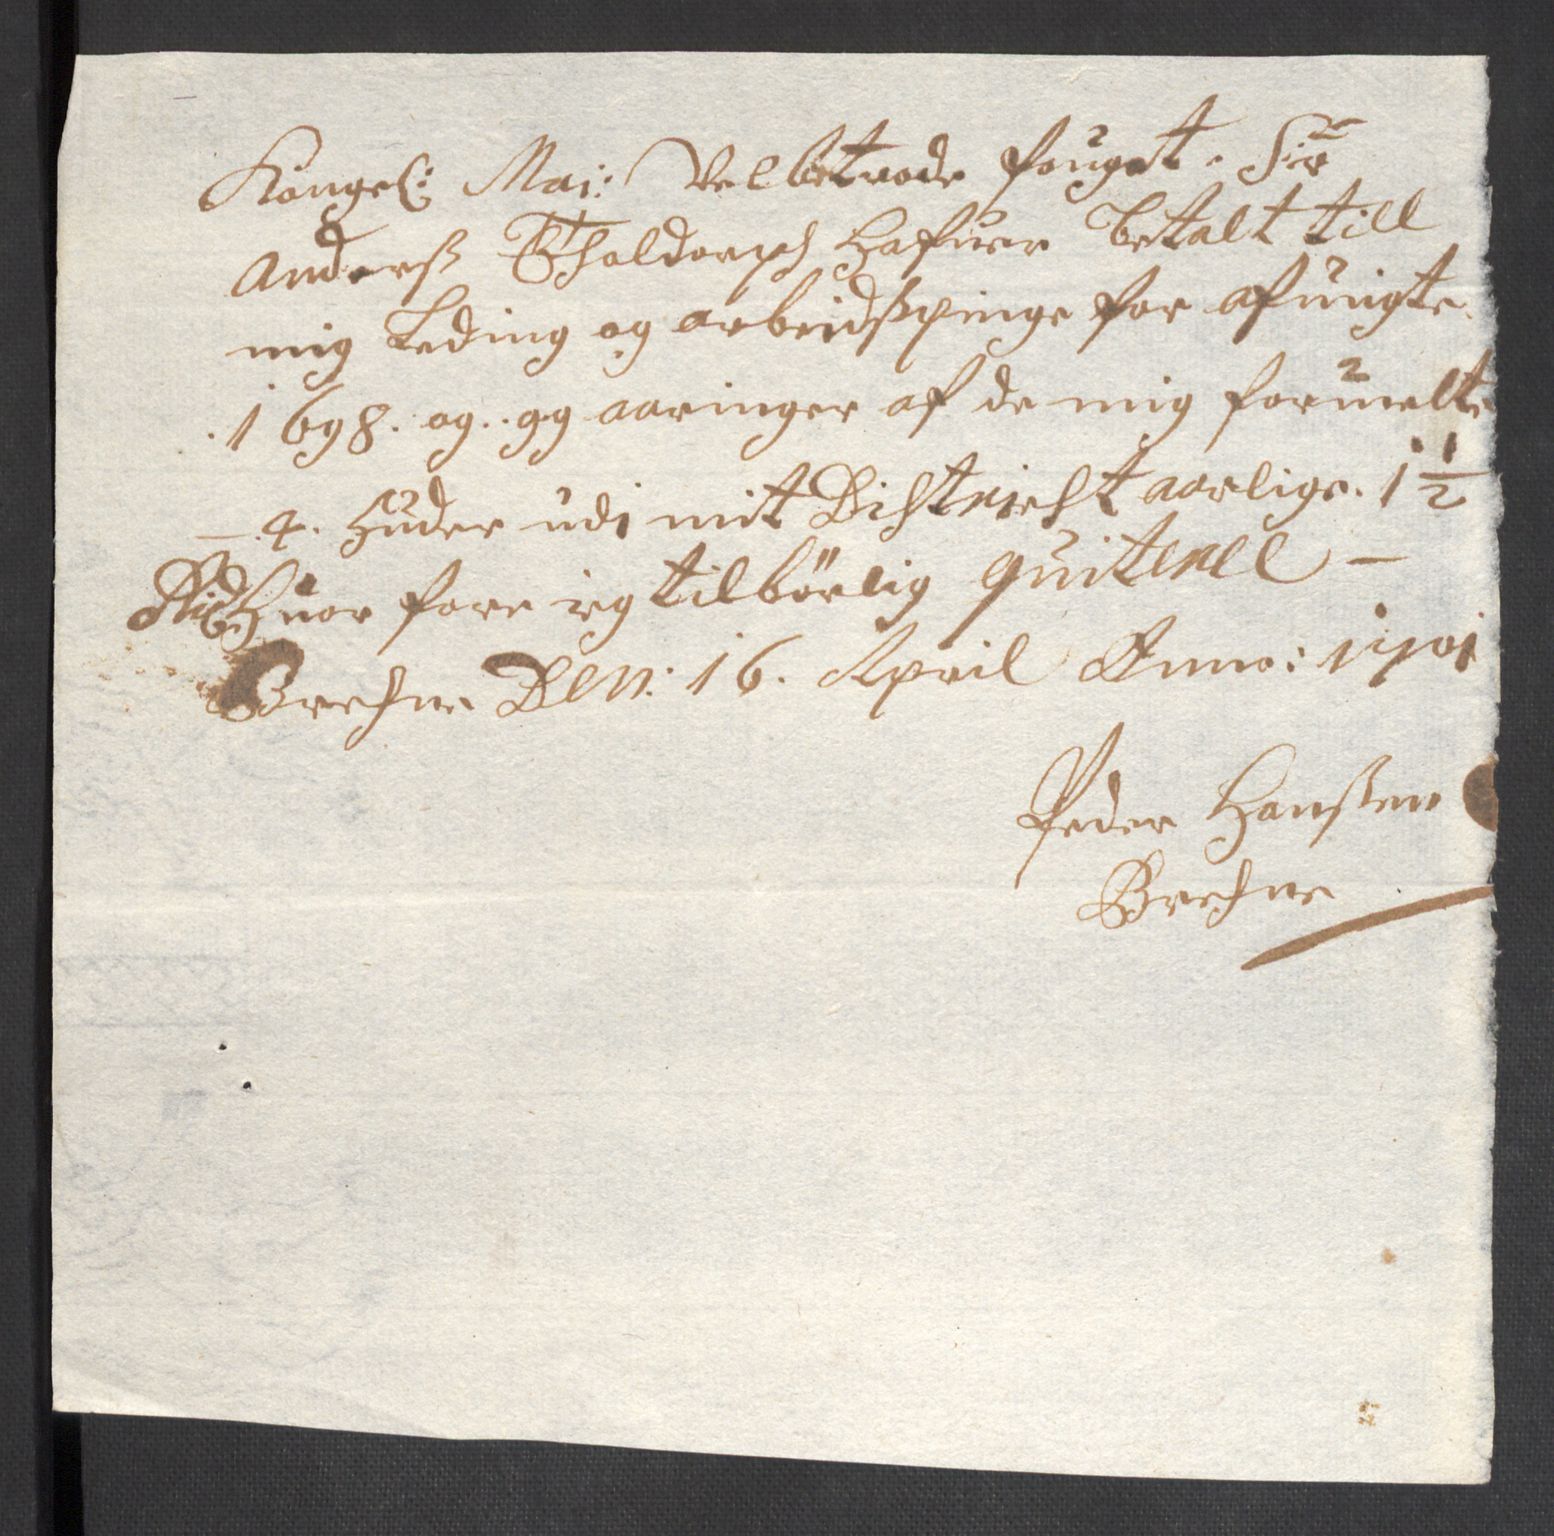 Kongel: Mai: Velbetrode fouget. Sr
Anderß Tholdorph hafuer betalt till
mig Leding og arbeidßpinge for afuigte
1698. og. 99 aaringer af de mig formelte
4. huder udi mit Districht aarlige. 1 1/2
Rd huor fore ieg tilbörlig quiterer
Brechne Den: 16. April Anno: 1701
Peder Hanßen
Brechne